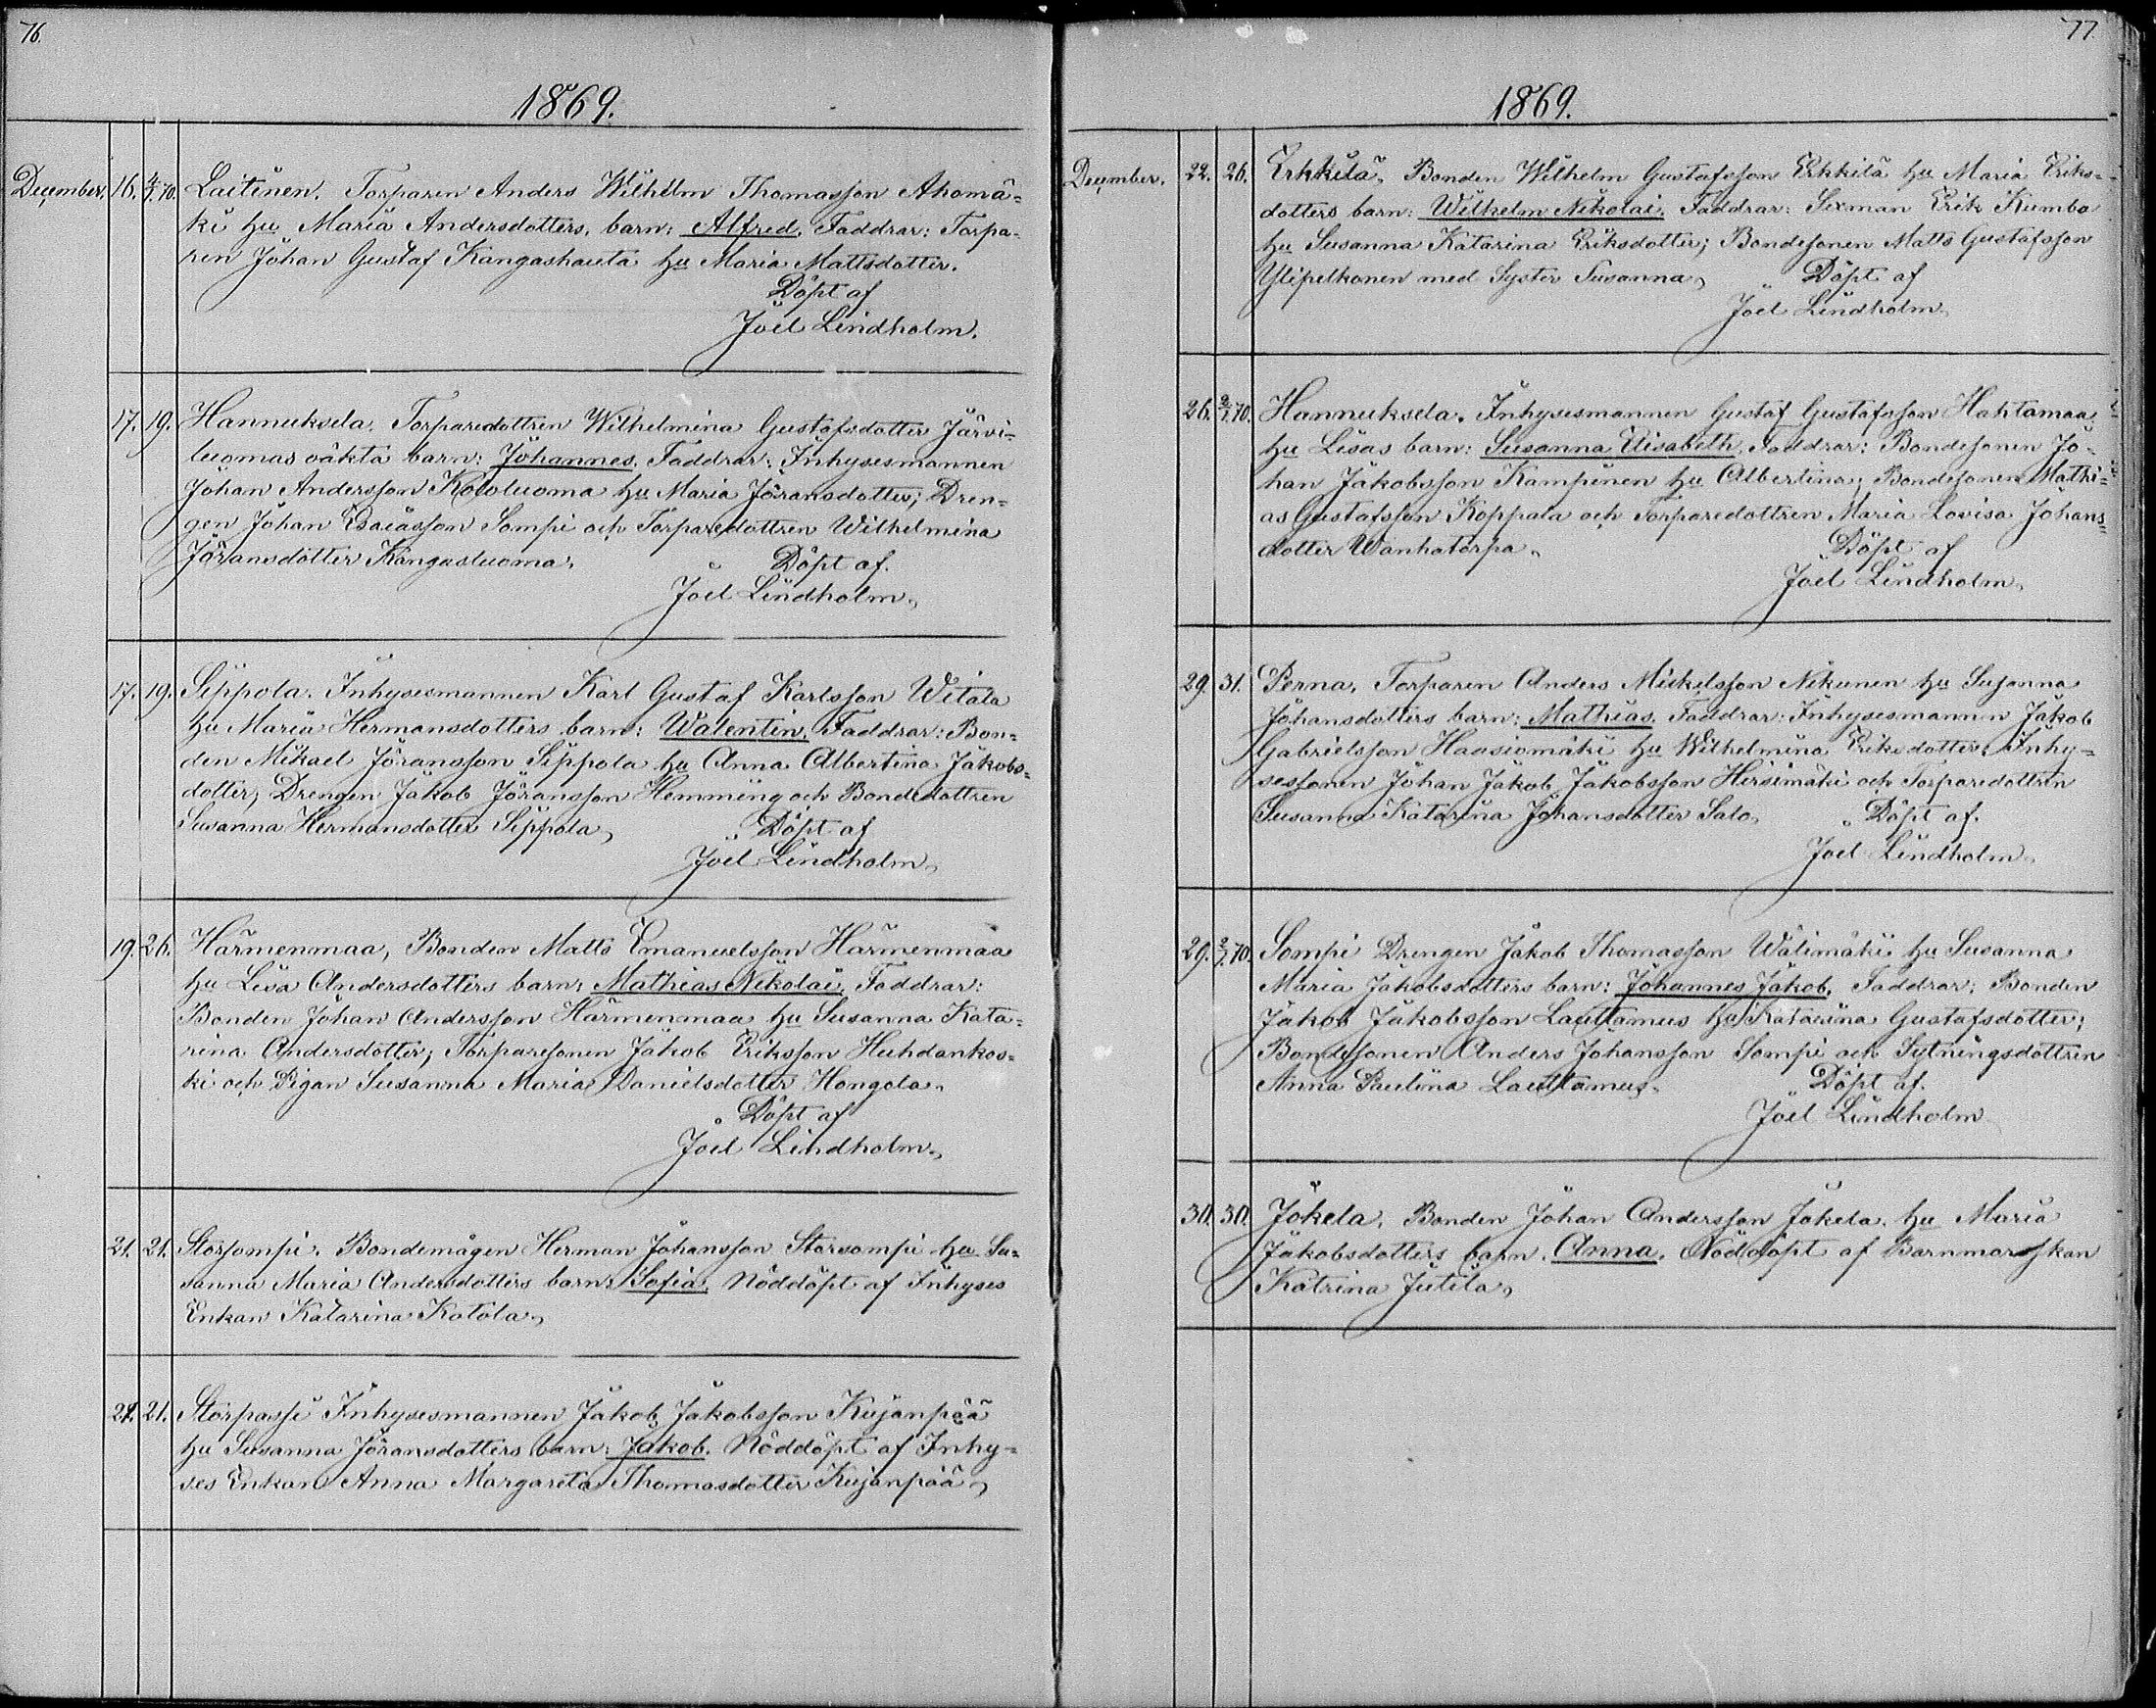 76.
1869.
December. 16. 4/1.70. Laitinen. Torparen Anders Wilhelm Thomasson Ahomä=
ki hu Maria Andersdotters, barn: Alfred. Faddrar: Torpa=
ren Johan Gustaf Kangashauta hu Maria Mattsdotter.
Döpt af
Joel Lindholm.
17. 19. Hannuksela. Torparedottren Wilhelmina Gustafsdotter Järvi=
luomas oäkta barn: Johannes. Faddrar: Inhysesmannen
Johan Andersson Kololuoma hu Maria Jöransdotter; Dren=
gen Johan Esaiasson Sompi och Torparedottren Wilhelmina
Jöransdotter Kangasluoma.
Döpt af.
Joel Lindholm.
17. 19. Sippola. Inhysesmannen Karl Gustaf Karlsson Witala
hu Maria Hermansdotters barn: Walentin. Faddrar: Bon=
den Mikael Jöransson Sippola hu Anna Albertina Jakobs=
dotter; Drengen Jakob Jöransson Hemming och Bondedottren
Susanna Hermansdotter Sippola.
Döpt af
Joel Lindholm.
19. 26. Harmenmaa, Bonden Matts Emanuelsson Harmenmaa
hu Lisa Andersdotters barn: Mathias Nikolai. Faddrar:
Bonden Johan Andersson Harmenmaa hu Susanna Kata=
rina Andersdotter; Torparesonen Jakob Eriksson Huhdankos=
ki och Pigan Susanna Maria Danielsdotter Hongola.
Döpt af
Joel Lindholm.
21. 21. Storsompi. Bondemågen Herman Johansson Storsompi hu Su=
sanna Maria Andersdotters barn: Sofia. Nöddöpt af Inhyses
Enkan Katarina Katola.
21. 21. Storpassi Inhysesmannen Jakob Jakobsson Kujanpää
hu Susanna Jöransdotters barn: Jakob. Nöddöpt af Inhy=
ses Enkan Anna Margareta Thomasdotter Kujanpää.
77.
1869.
December. 22. 26. Erkkilä. Bonden Wilhelm Gustafsson Erkkilä hu Maria Eriks=
dotters barn: Wilhelm Nikolai. Faddrar: Sexman Erik Kumba
hu Susanna Katarina Eriksdotter; Bondesonen Matts Gustafsson
Ylipelkonen med Syster Susanna.
Döpt af
Joel Lindholm.
26. 2/1.70. Hannuksela. Inhysesmannen Gustaf Gustafsson Hahtamaa
hu Lisas barn: Susanna Elisabeth. Faddrar: Bondesonen Jo=
han Jakobsson Kampinen hu Albertina; Bondesonen Mathi=
as Gustafsson Koppala och Torparedottren Maria Lovisa Johans=
dotter Wanhatorpa.
Döpt af
Joel Lindholm.
29. 31. Perna. Torparen Anders Mickelsson Nikunen hu Susanna
Johansdotters barn: Mathias. Faddrar: Inhysesmannen Jakob
Gabrielsson Haasiomäki hu Wilhelmina Eriksdotter; Inhy=
sessonen Johan Jakob Jakobsson Hirsimäki och Torparedottren
Susanna Katarina Johansdotter Salo.
Döpt af.
Joel Lindholm.
29. 2/1.70. Sompi Drengen Jakob Thomasson Wälimäki hu Susanna
Maria Jakobsdotters barn: Johannes Jakob. Faddrar: Bonden
Jakob Jakobsson Lauttamus hu Katarina Gustafsdotter;
Bondesonen Anders Johansson Sompi och Sytningsdottren
Anna Paulina Lauttamus.
Döpt af.
Joel Lindholm
30. 30. Jokela. Bonden Johan Andersson Jokela. hu Maria
Jakobsdotters barn. Anna. Nöddöpt af Barnmorskan
Katrina Jutila.